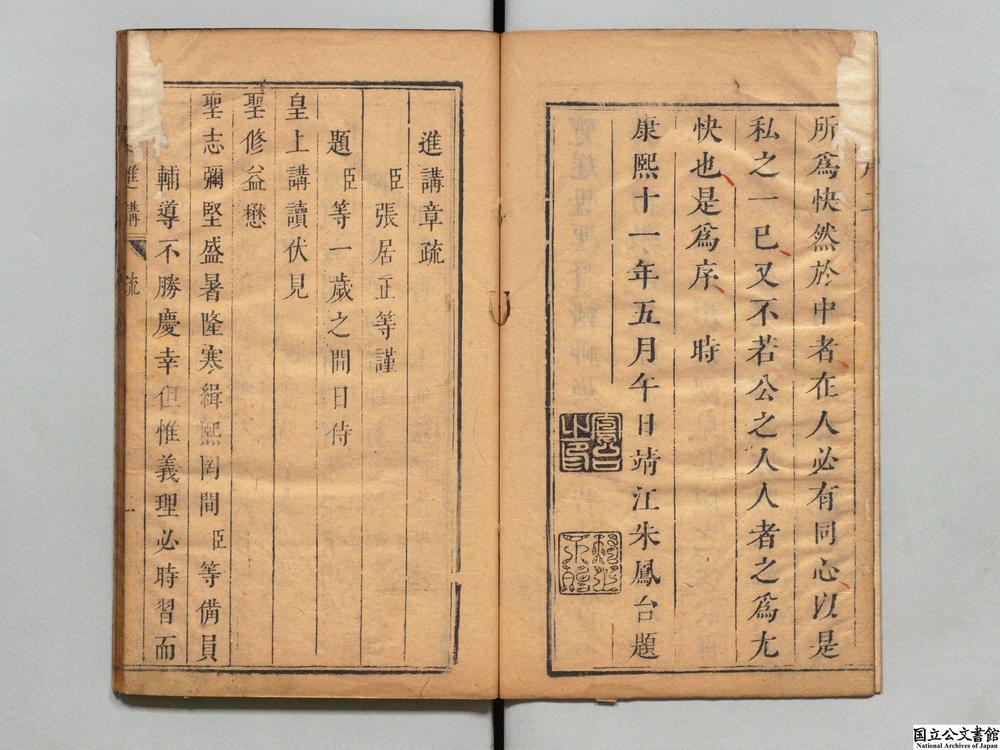 所爲快然於中者在人必有同心以是
私之一已又不若公之人人者之爲尤
快也是爲序 時
康熙十一年五月午日靖江朱鳳台題
進講章疏
臣張居正等謹
題臣等一歲之間日侍
皇上講讀伏見
聖修益懋
聖志彌堅盛暑隆寒緝熙罔間臣等備員
輔導不勝慶幸但惟義理必時習而
進講 疏 一
国立公文書館
National Archives of Japan